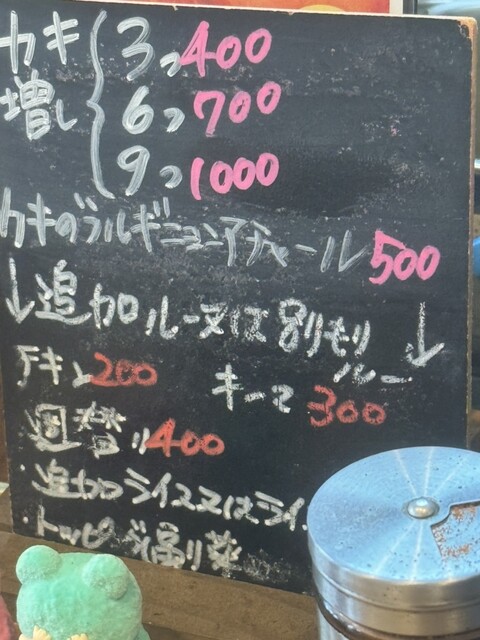 カキ増し 3つ 400
6つ 700
9つ 1000
カキのブルギニョンアチャール 500
↓追加ルー又は別もりルー↓
チキン200 キーマ 300
週替り400
・追加ライス又はライ
・トッピング